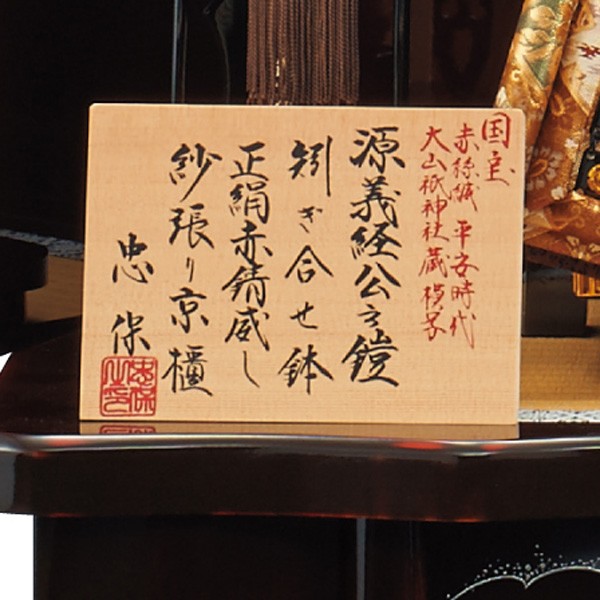 国宝
赤絲縅 平安時代
大山祇神社蔵 模写
源義経公之鎧
矧ぎ合せ鉢
正絹赤錆威し
紗張り京櫃
忠保
忠保